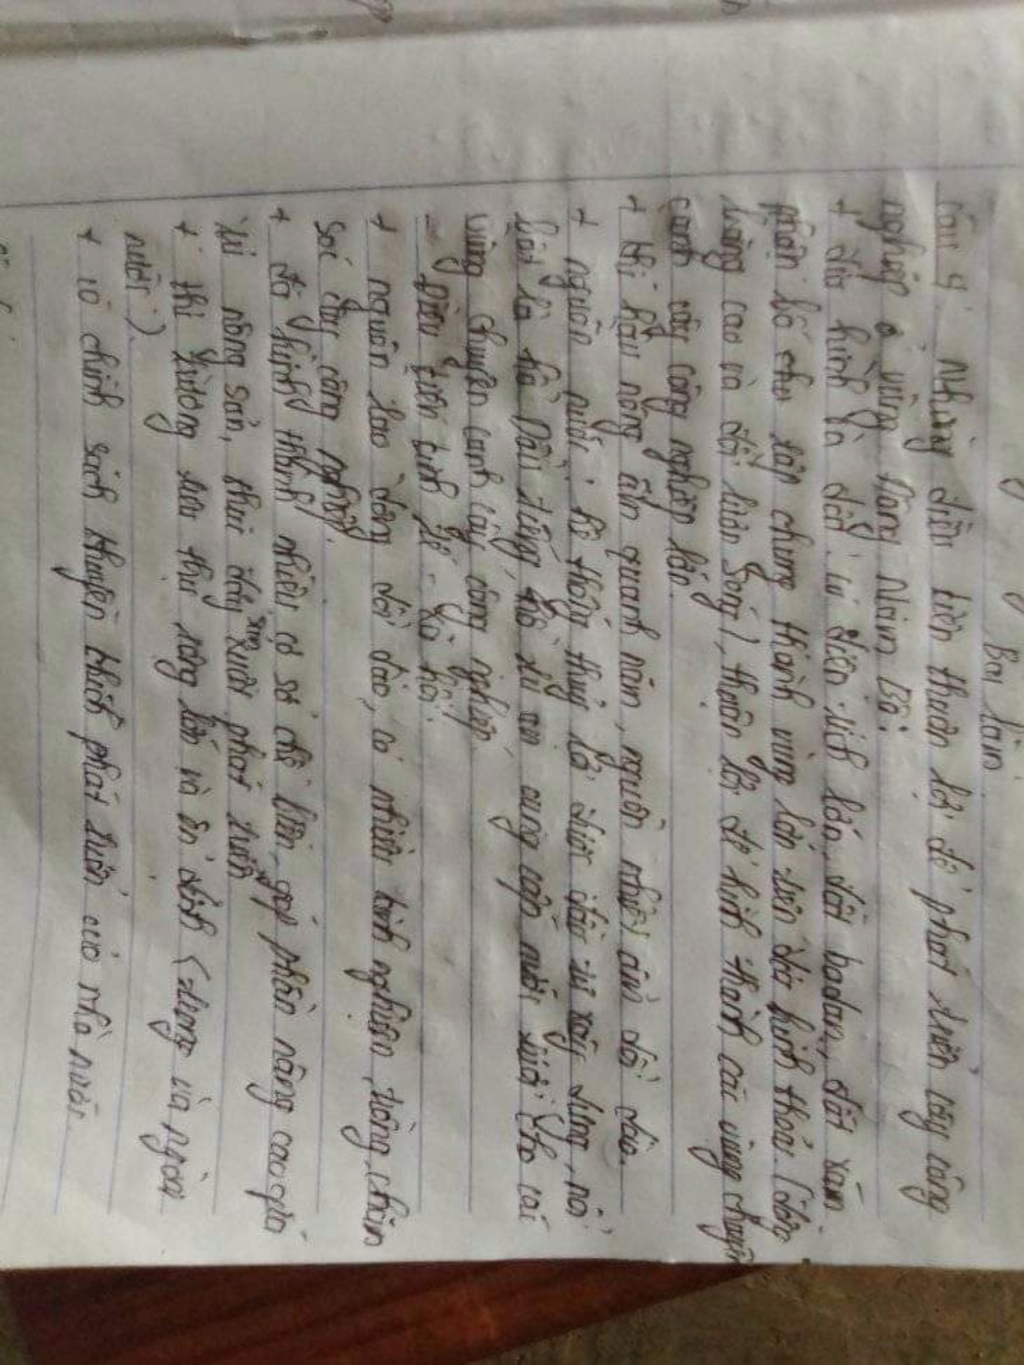 Bài làm
Câu 4: Những điều kiện thuận lợi để phát triển cây công
nghiệp ở vùng Đông Nam Bộ:
+ địa hình và đất: có diện tích lớn, đất badan, đất xám
phân bố chủ tập chung thành vùng lớn trên địa hình thoải (đồng
bằng cao và đồi lượn sóng), thuận lợi để hình thành các vùng chuyên
canh cây công nghiệp lớn.
+ khí hậu nóng ẩm quanh năm, nguồn nhiệt ẩm dồi dào.
+ nguồn nước: hệ thống thuỷ lợi được đầu tư xây dựng, nổi
bật là hồ Dầu Tiếng, hồ Trị an cung cấp nước tưới cho các
vùng chuyên canh cây công nghiệp
- Điều kiện kinh tế - xã hội:
+ nguồn lao động dồi dào, có nhiều kinh nghiệm trồng, chăm
sóc cây công nghiệp.
+ đã hình thành nhiều cơ sở chế biến, góp phần nâng cao giá
trị nông sản, thúc đẩy sản xuất phát triển
+ thị trường tiêu thụ rộng lớn và ổn định (trong và ngoài
nước).
+ có chính sách khuyến khích phát triển của nhà nước.